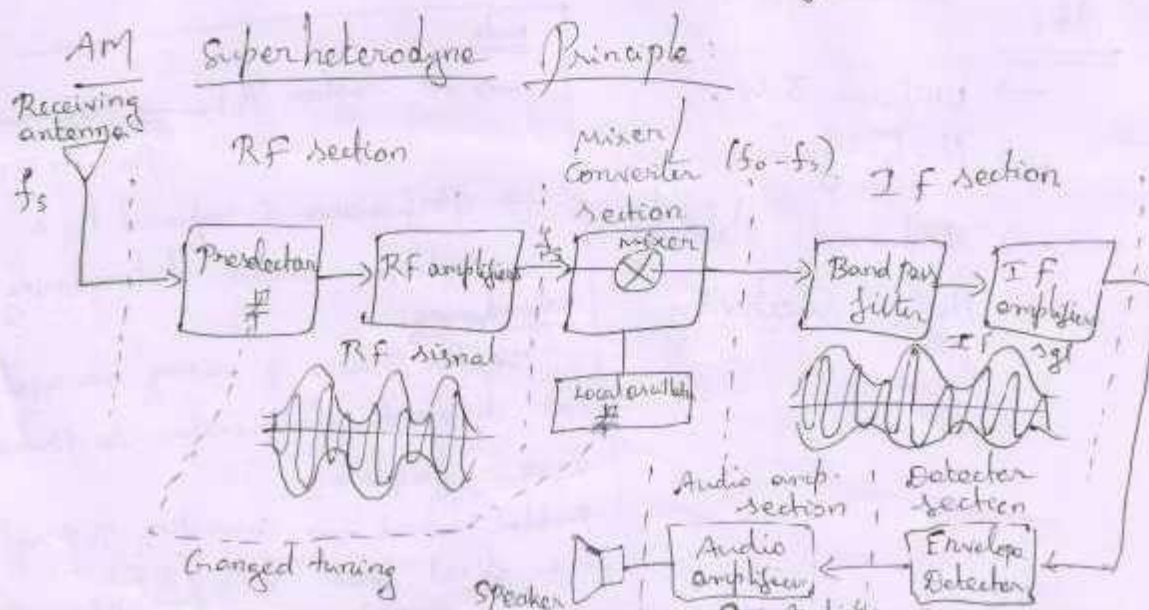 AM Superheterodyne Principle:
Receiving
antenna
fs
RF section
Mixer/
Converter
section
(fo-fs)
IF section
Preselector
RF amplifier
fs
mixer
Band pass
filter
IF
amplifier
RF signal
Local oscillator
IF sgl
Ganged tuning
Audio amp.
section
Detector
section
Speaker
Audio
amplifier
Envelope
Detector